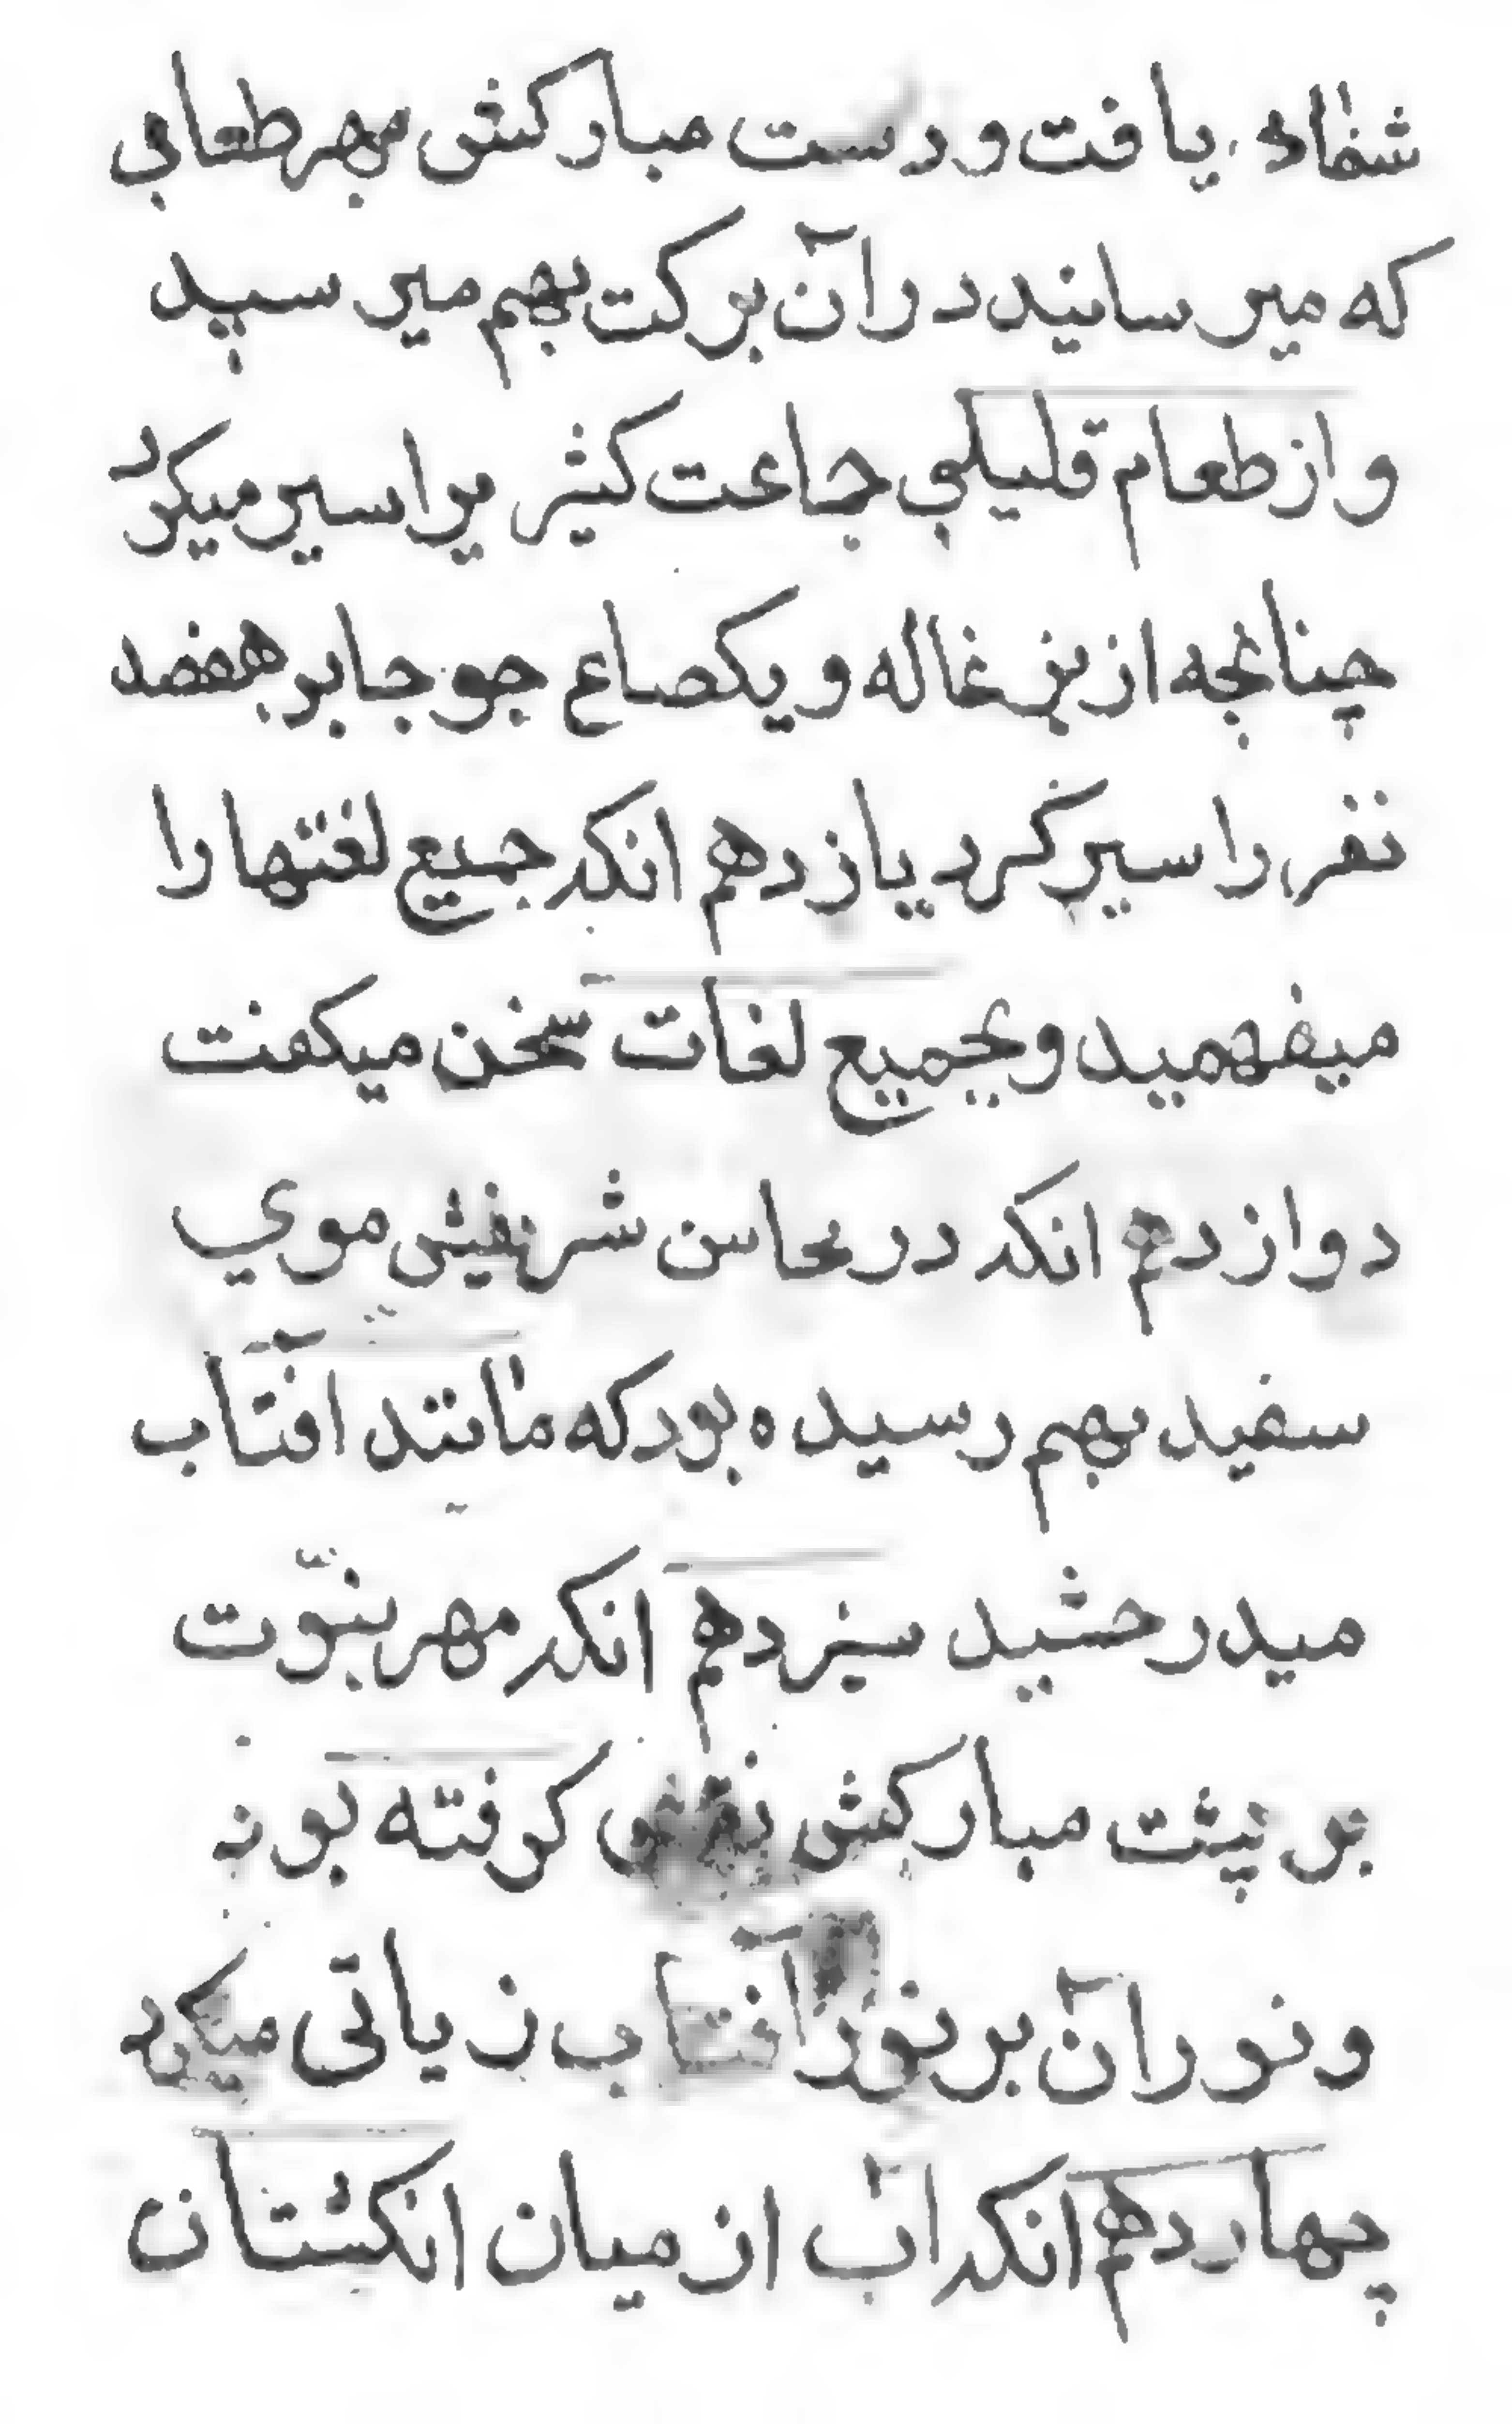 شفا می یافت و دست مبارکش بهر طعامی
که میرسانید در آن برکت بهم میرسید
و از طعام قلیلی جماعت کثیر یرا سیر میکرد
چنانچه از بزغاله و یکصاع جو جابر هفصد
نفر را سیر کرد یازدهم انکه جمیع لغتها را
میفهمید و بجمیع لغات سخن میکفت
دوازدهم انکه در محاسن شریفش موی
سفید بهم رسیده بود که مانند افتاب
میدرخشید سیزدهم انکه مهر نبوّت
بر پشت مبارکش نقش کرفته بود
و نور آن بر نور آفتاب زیاتی میکرد
چهاردهم انکه اب از میان انکشتان